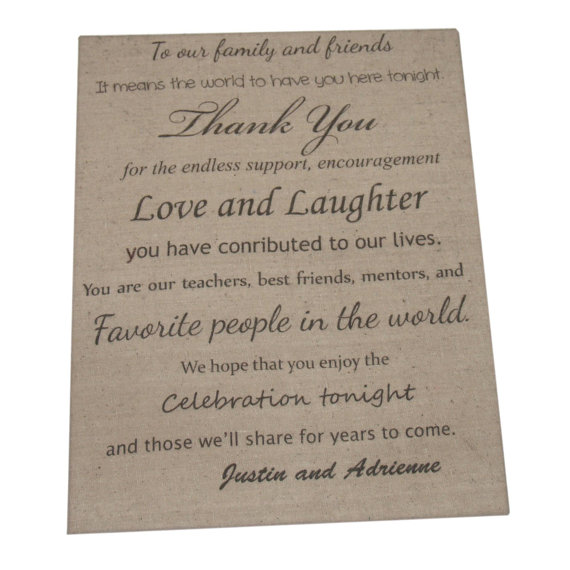 To our family and friends
It means the world to have you here tonight.
Thank You
for the endless support, encouragement
Love and Laughter
you have conributed to our lives.
You are our teachers, best friends, mentors, and
Favorite people in the world.
We hope that you enjoy the
Celebration tonight
and those we'll share for years to come.
Justin and Adrienne